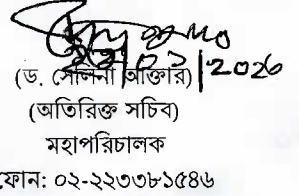 ২২/০১/2026
(ড. সেলিনা আক্তার)
(অতিরিক্ত সচিব)
মহাপরিচালক
ফোন: ০২-২২৩৩৮১৫৪৬